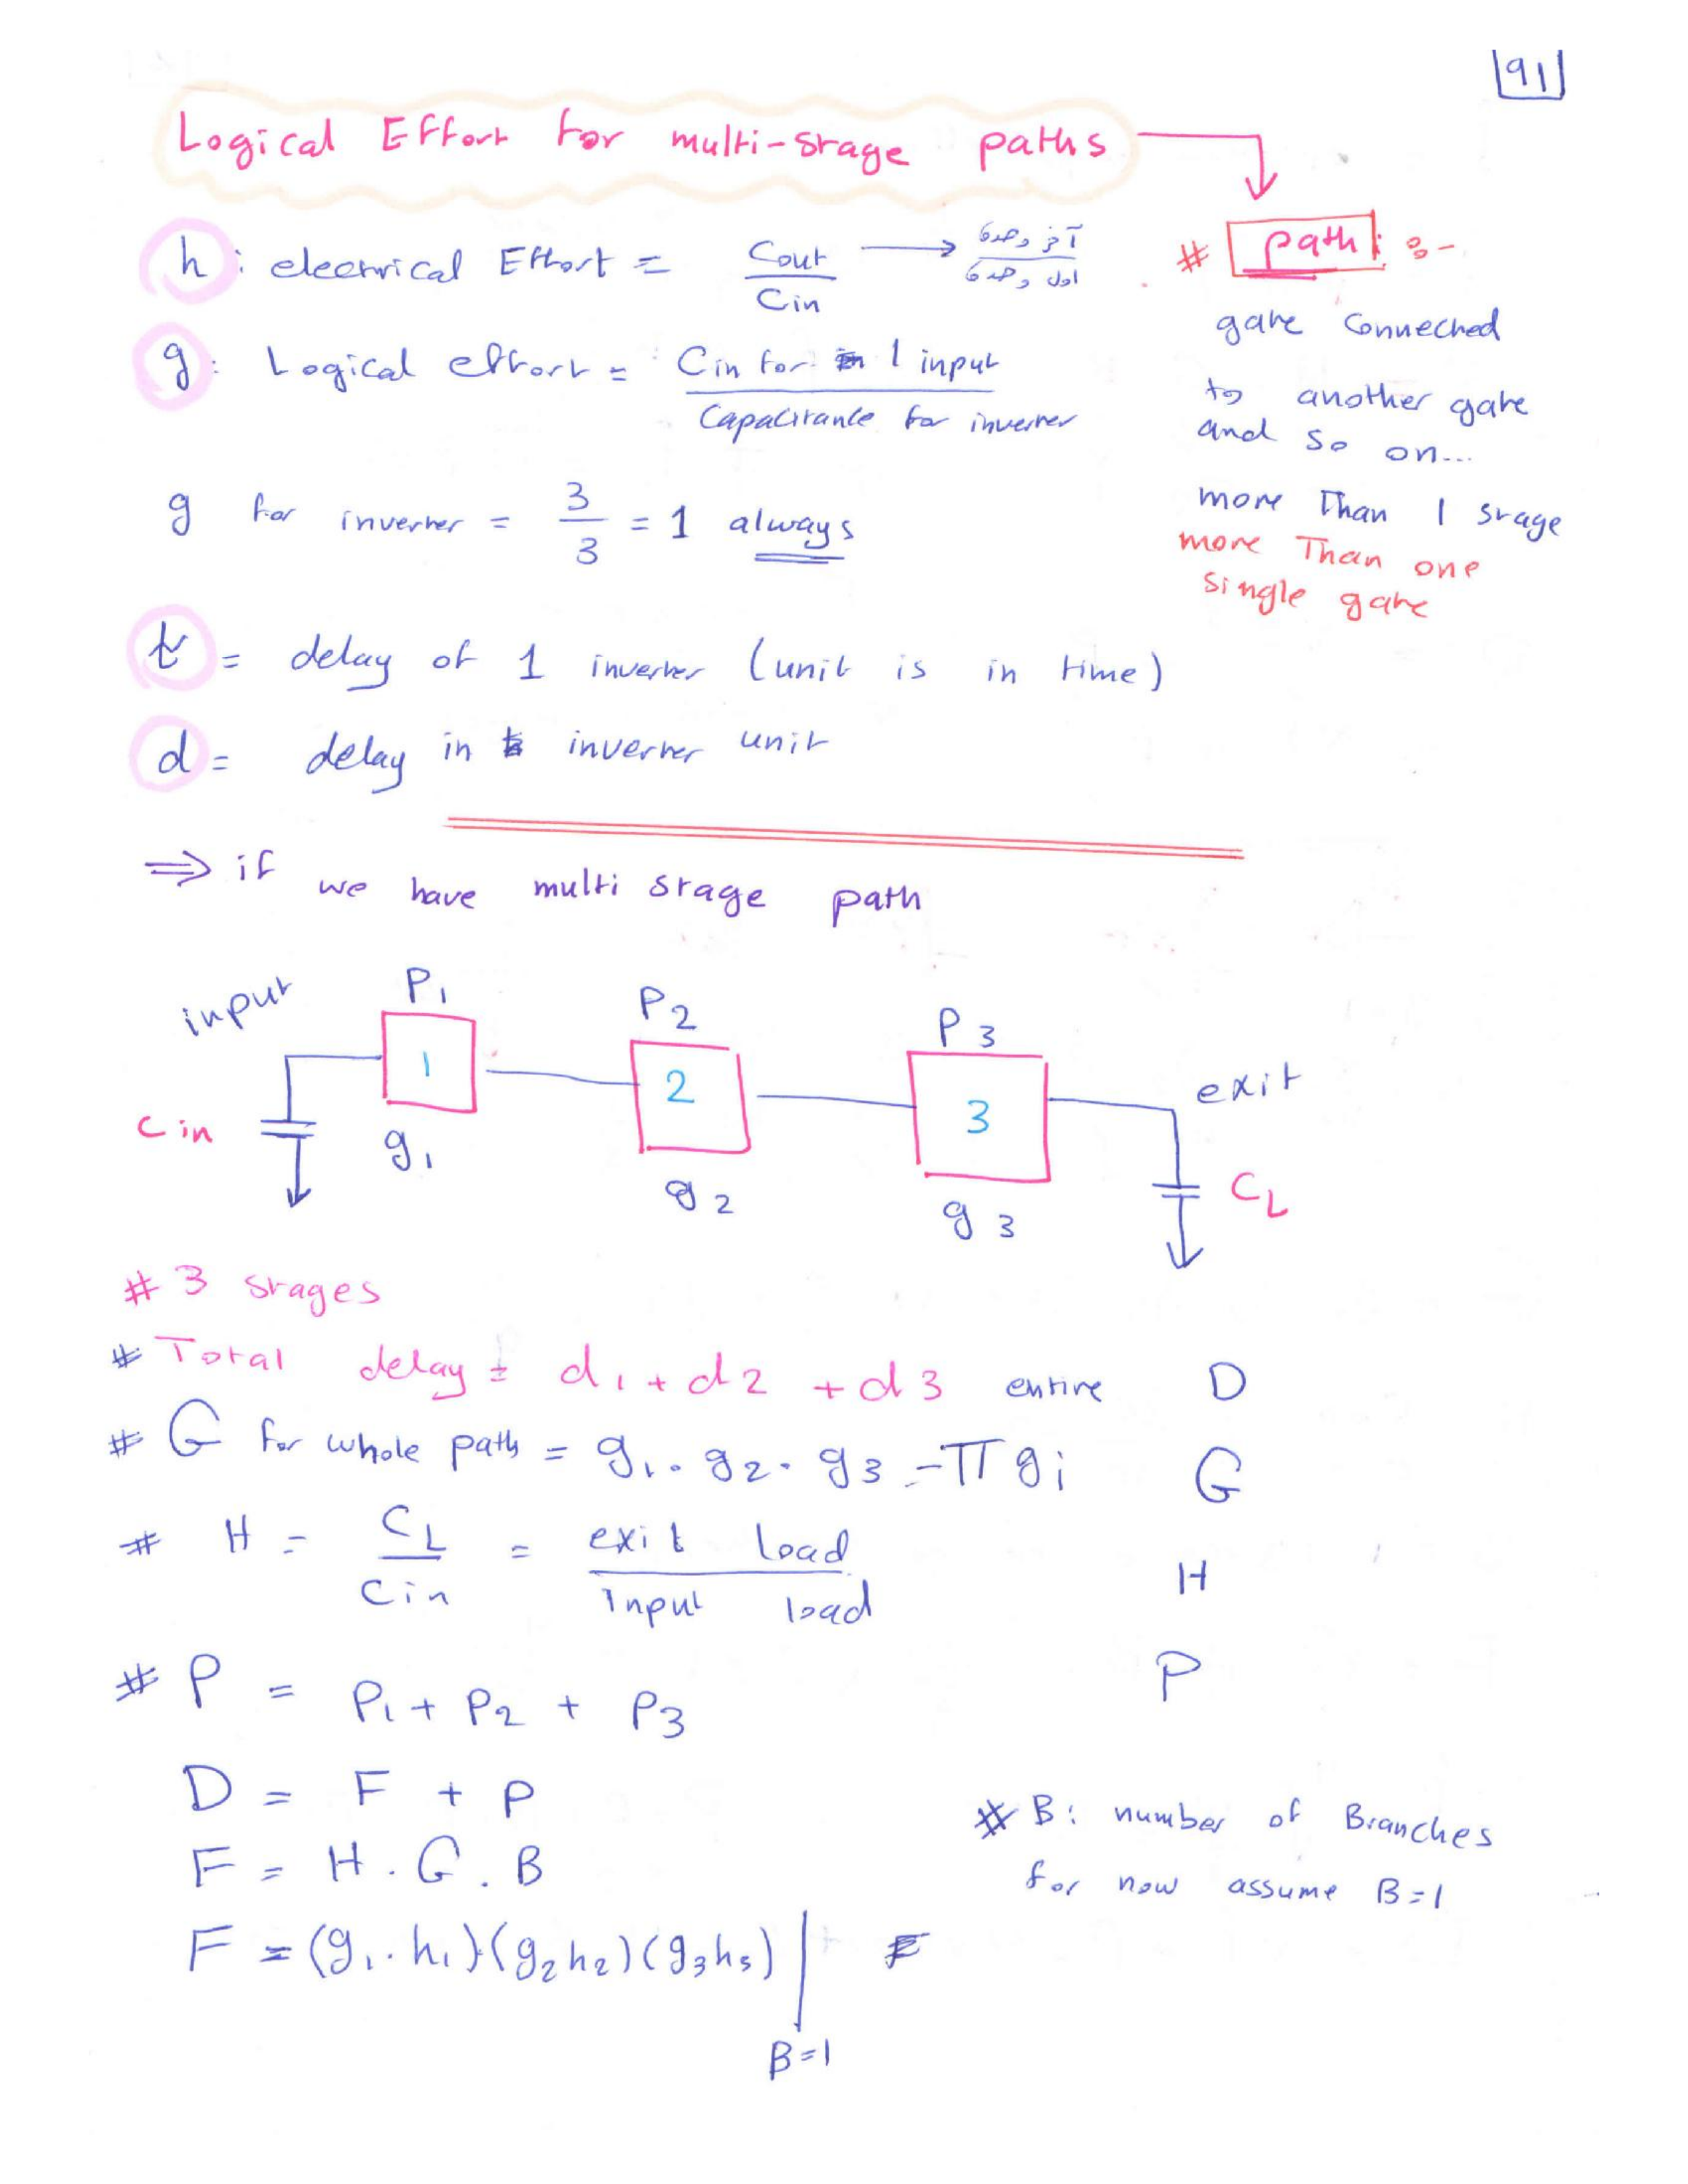 91
Logical Effort for multi-stage paths
h: electrical Effort = Cout / Cin → آخر وحدة / اول وحدة
g: Logical effort = Cin for 1 input / Capacitance for inverter
g for inverter = 3/3 = 1 always
t = delay of 1 inverter (unit is in time)
d = delay in inverter unit
# path :-
gate connected
to another gate
and so on...
more Than 1 stage
more Than one
single gate
⇒ if we have multi stage path
input
P1
P2
P3
1
2
3
exit
Cin
g1
g2
g3
CL
# 3 stages
# Total delay = d1 + d2 + d3 entire D
# G for whole path = g1 . g2 . g3 = π gi G
# H = CL / Cin = exit load / Input load H
# P = P1 + P2 + P3 P
D = F + P
F = H . G . B
# B: number of Branches
for now assume B=1
F = (g1 . h1)(g2 h2)(g3 h3) | B=1 F